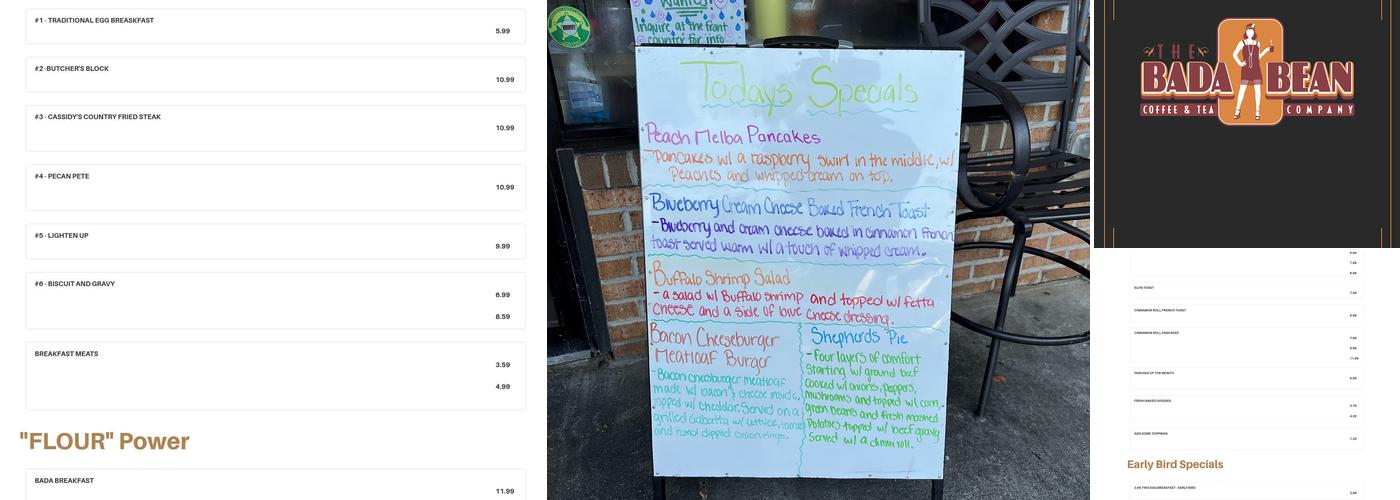 #1 - TRADITIONAL EGG BREAKFAST
5.99
#2 -BUTCHER'S BLOCK
10.99
#3 - CASSIDY'S COUNTRY FRIED STEAK
10.99
#4 - PECAN PETE
10.99
#5 - LIGHTEN UP
9.99
#6 - BISCUIT AND GRAVY
6.99
8.59
BREAKFAST MEATS
3.59
4.99
"FLOUR" Power
BADA BREAKFAST
11.99
Inquire at the front
counter for info
Todays Specials
Peach Melba Pancakes
-Pancakes w/ a raspberry swirl in the middle, w/
Peaches and whipped cream on top.
Blueberry Cream Cheese Baked French Toast
-Blueberry and cream cheese baked in cinnamon french
toast served warm w/ a touch of whipped cream.
Buffalo Shrimp Salad
- a salad w/ Buffalo shrimp and topped w/ fetta
cheese and a side of love cheese dressing.
Bacon Cheeseburger
Meatloaf Burger
made w/ bacon & cheese inside,
topped w/ cheddar. Served on a
grilled ciabatta w/ lettuce, tomato
and hand dipped onion rings.
Shepherds Pie
-Four layers of comfort
Starting w/ ground beef
cooked w/ onions, peppers,
mushrooms and topped w/ corn,
green beans and fresh mashed
Potatoes topped w/ beef gravy
Served w/ a dinner roll.
THE
BADA BEAN
COFFEE & TEA COMPANY
CINNAMON ROLL FRENCH TOAST
CINNAMON ROLL PANCAKES
PANCAKE OF THE MONTH
FRESH BAKED GOODIES
ADD SOME TOPPINGS
Early Bird Specials